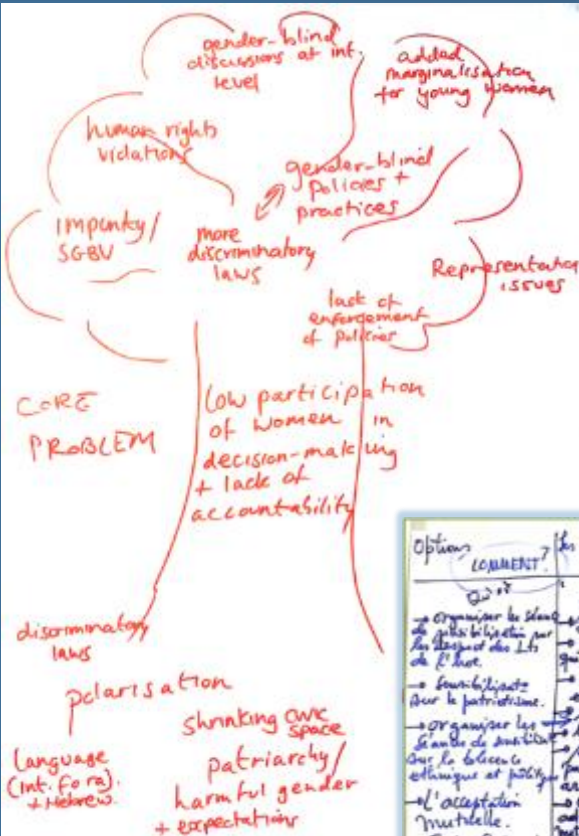 gender-blind
discussions at int.
level
added
marginalisation
for young women
human rights
violations
gender-blind
policies +
practices
impunity/
SGBV
more
discriminatory
laws
Representation
issues
lack of
enforcement
of policies
CORE
PROBLEM
Low participation
of women in
decision-making
+ lack of
accountability
discriminatory
laws
polarisation
shrinking civic
space
Language
(int. fora)
+ Hebrew
patriarchy/
harmful gender
+ expectations
Options
COMMENT?
→ organiser les
de sensibilisation sur
de l'hoe.
→
sur le patriotisme.
→ organiser les
de
sur la
ethnique et
→ l'acceptation
mutuelle.